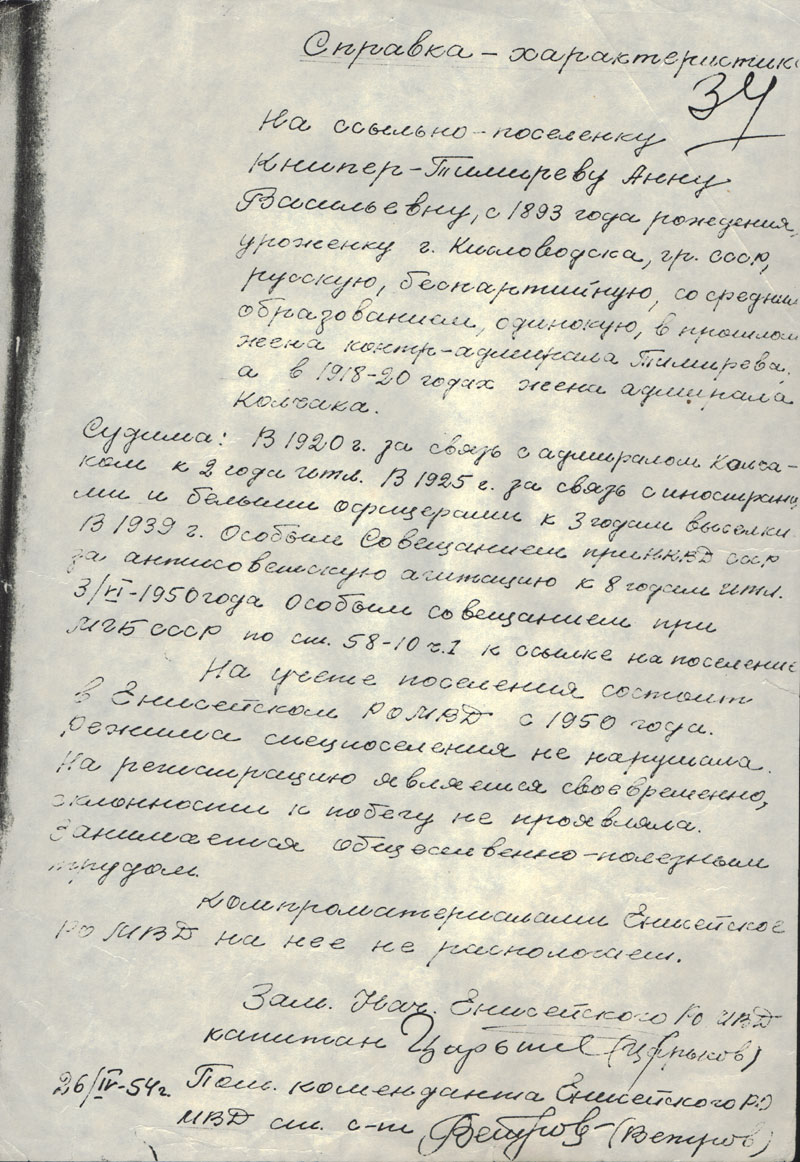 Справка – характеристик
34
На ссыльно-поселенку
Книпер-Тимиреву Анну
Васильевну, с 1893 года рождения,
уроженку г. Кисловодска, гр. СССР,
русскую, беспартийную, со средним
образованием, одинокую, в прошлом
жена контр-адмирала Тимирева,
а в 1918-20 годах жена адмирала
Колчака.
Судима: В 1920 г. за связь с адмиралом Колча-
ком к 2 года итл. В 1925 г. за связь с иностранц
ми и белыми офицерами к 3 годам высылки.
В 1939 г. Особым Совещанием при НКВД СССР
за антисоветскую агитацию к 8 годам итл.
3/VI-1950 года Особым совещанием при
МГБ СССР по ст. 58-10 ч. I к ссылке на поселение
На учете поселения состоит
в Енисейском РО МВД с 1950 года.
Режима спецпоселения не нарушала.
На регистрацию является своевременно,
склонности к побегу не проявляла.
Занимается общественно-полезным
трудом.
Компроматериалами Енисейское
РО МВД на нее не распологаем.
Зам. Нач. Енисейского РО МВД
капитан Царьков (Царьков)
26/IV-54 г. Пом. коменданта Енисейского РО
МВД ст. с-т Ветров (Ветров)